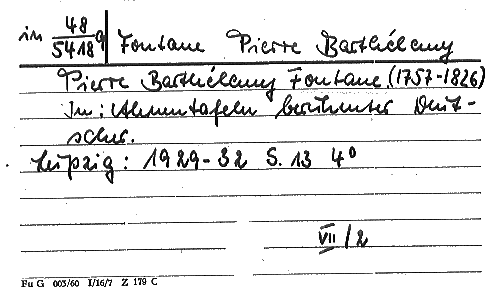 in 48/5418 q Fontane Pierre Barthélemy
Pierre Barthélemy Fontane (1757-1826)
In: Ahnentafeln berühmter Deut-
scher.
Leipzig: 1929-32 S. 13 4°
VII/2
Fu G 003/60 I/16/7 Z 179 C